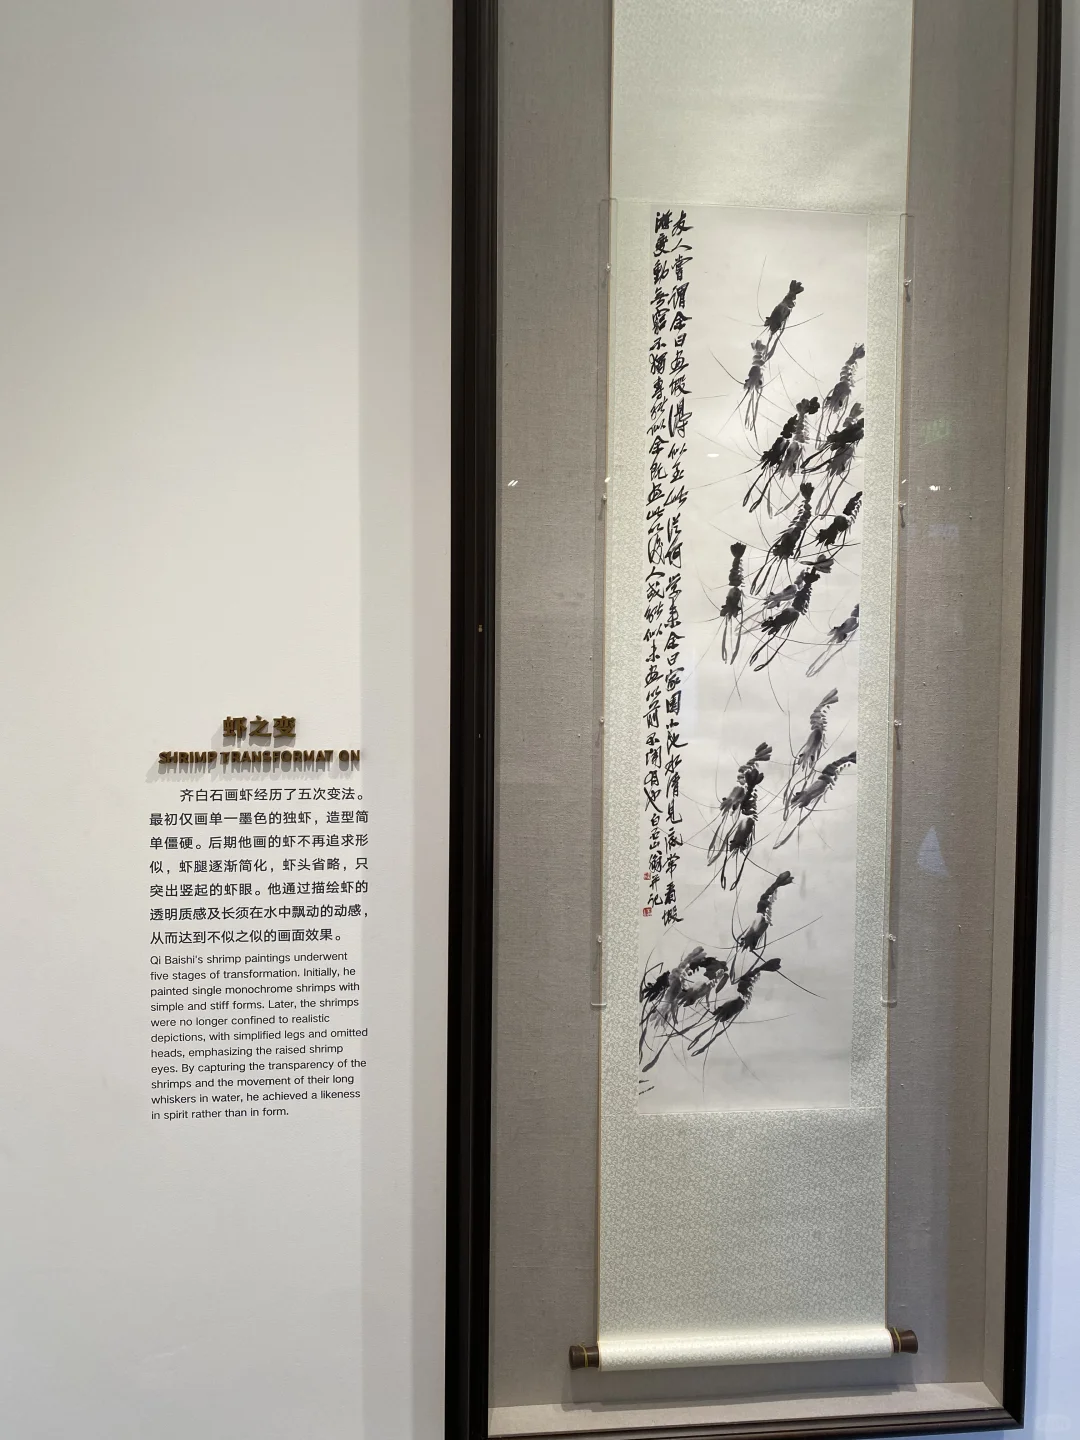 虾之变
SHRIMP TRANSFORMAT ON
齐白石画虾经历了五次变法。
最初仅画单一墨色的独虾，造型简
单僵硬。后期他画的虾不再追求形
似，虾腿逐渐简化，虾头省略，只
突出竖起的虾眼。他通过描绘虾的
透明质感及长须在水中飘动的动感，
从而达到不似之似的画面效果。
Qi Baishi's shrimp paintings underwent
five stages of transformation. Initially, he
painted single monochrome shrimps with
simple and stiff forms. Later, the shrimps
were no longer confined to realistic
depictions, with simplified legs and omitted
heads, emphasizing the raised shrimp
eyes. By capturing the transparency of the
shrimps and the movement of their long
whiskers in water, he achieved a likeness
in spirit rather than in form.
友人嘗謂余曰画蝦得似至此從何學來余曰家園小池水清見底常看蝦
游變動無窮不獨專能似余既画此以後人或能似未画以前不聞有也白石山翁并記